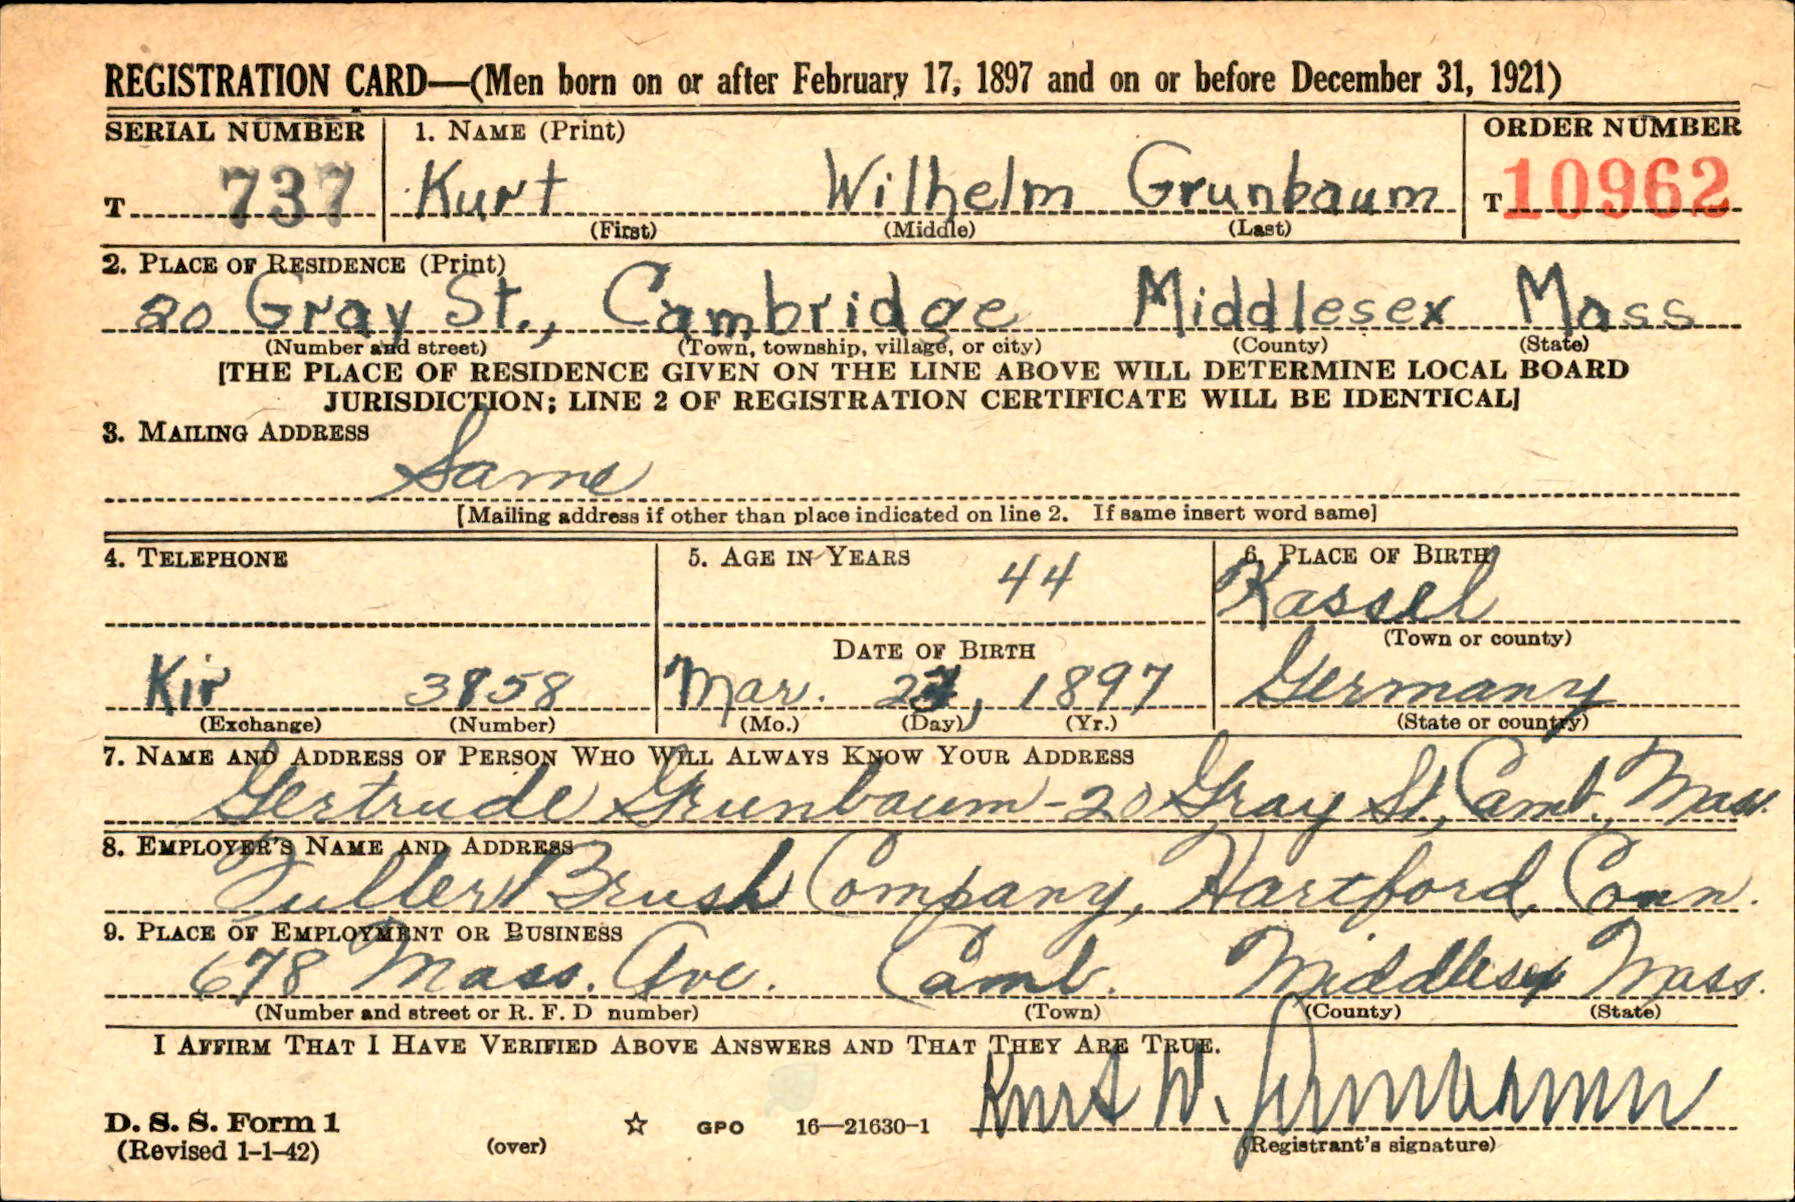 REGISTRATION CARD—(Men born on or after February 17, 1897 and on or before December 31, 1921)
SERIAL NUMBER 1. NAME (Print) ORDER NUMBER
T 737 Kurt Wilhelm Grunbaum T 10962
(First) (Middle) (Last)
2. PLACE OF RESIDENCE (Print)
20 Gray St., Cambridge Middlesex Mass
(Number and street) (Town, township, village, or city) (County) (State)
[THE PLACE OF RESIDENCE GIVEN ON THE LINE ABOVE WILL DETERMINE LOCAL BOARD
JURISDICTION; LINE 2 OF REGISTRATION CERTIFICATE WILL BE IDENTICAL]
3. MAILING ADDRESS
Same
[Mailing address if other than place indicated on line 2. If same insert word same]
4. TELEPHONE 5. AGE IN YEARS 6. PLACE OF BIRTH
44 Kassel
(Town or county)
DATE OF BIRTH
Kir 3858 Mar. , 1897 Germany
(Exchange) (Number) (Mo.) (Day) (Yr.) (State or country)
7. NAME AND ADDRESS OF PERSON WHO WILL ALWAYS KNOW YOUR ADDRESS
Gertrude Grunbaum - 20 Gray St., Camb., Mass.
8. EMPLOYER'S NAME AND ADDRESS
Fuller Brush Company, Hartford, Conn.
9. PLACE OF EMPLOYMENT OR BUSINESS
678 Mass. Ave. Camb. Middlesex Mass.
(Number and street or R. F. D number) (Town) (County) (State)
I AFFIRM THAT I HAVE VERIFIED ABOVE ANSWERS AND THAT THEY ARE TRUE.
Kurt W. Grunbaum
D. S. S. Form 1
(Revised 1-1-42) (over) ☆ GPO 16—21630-1 (Registrant's signature)